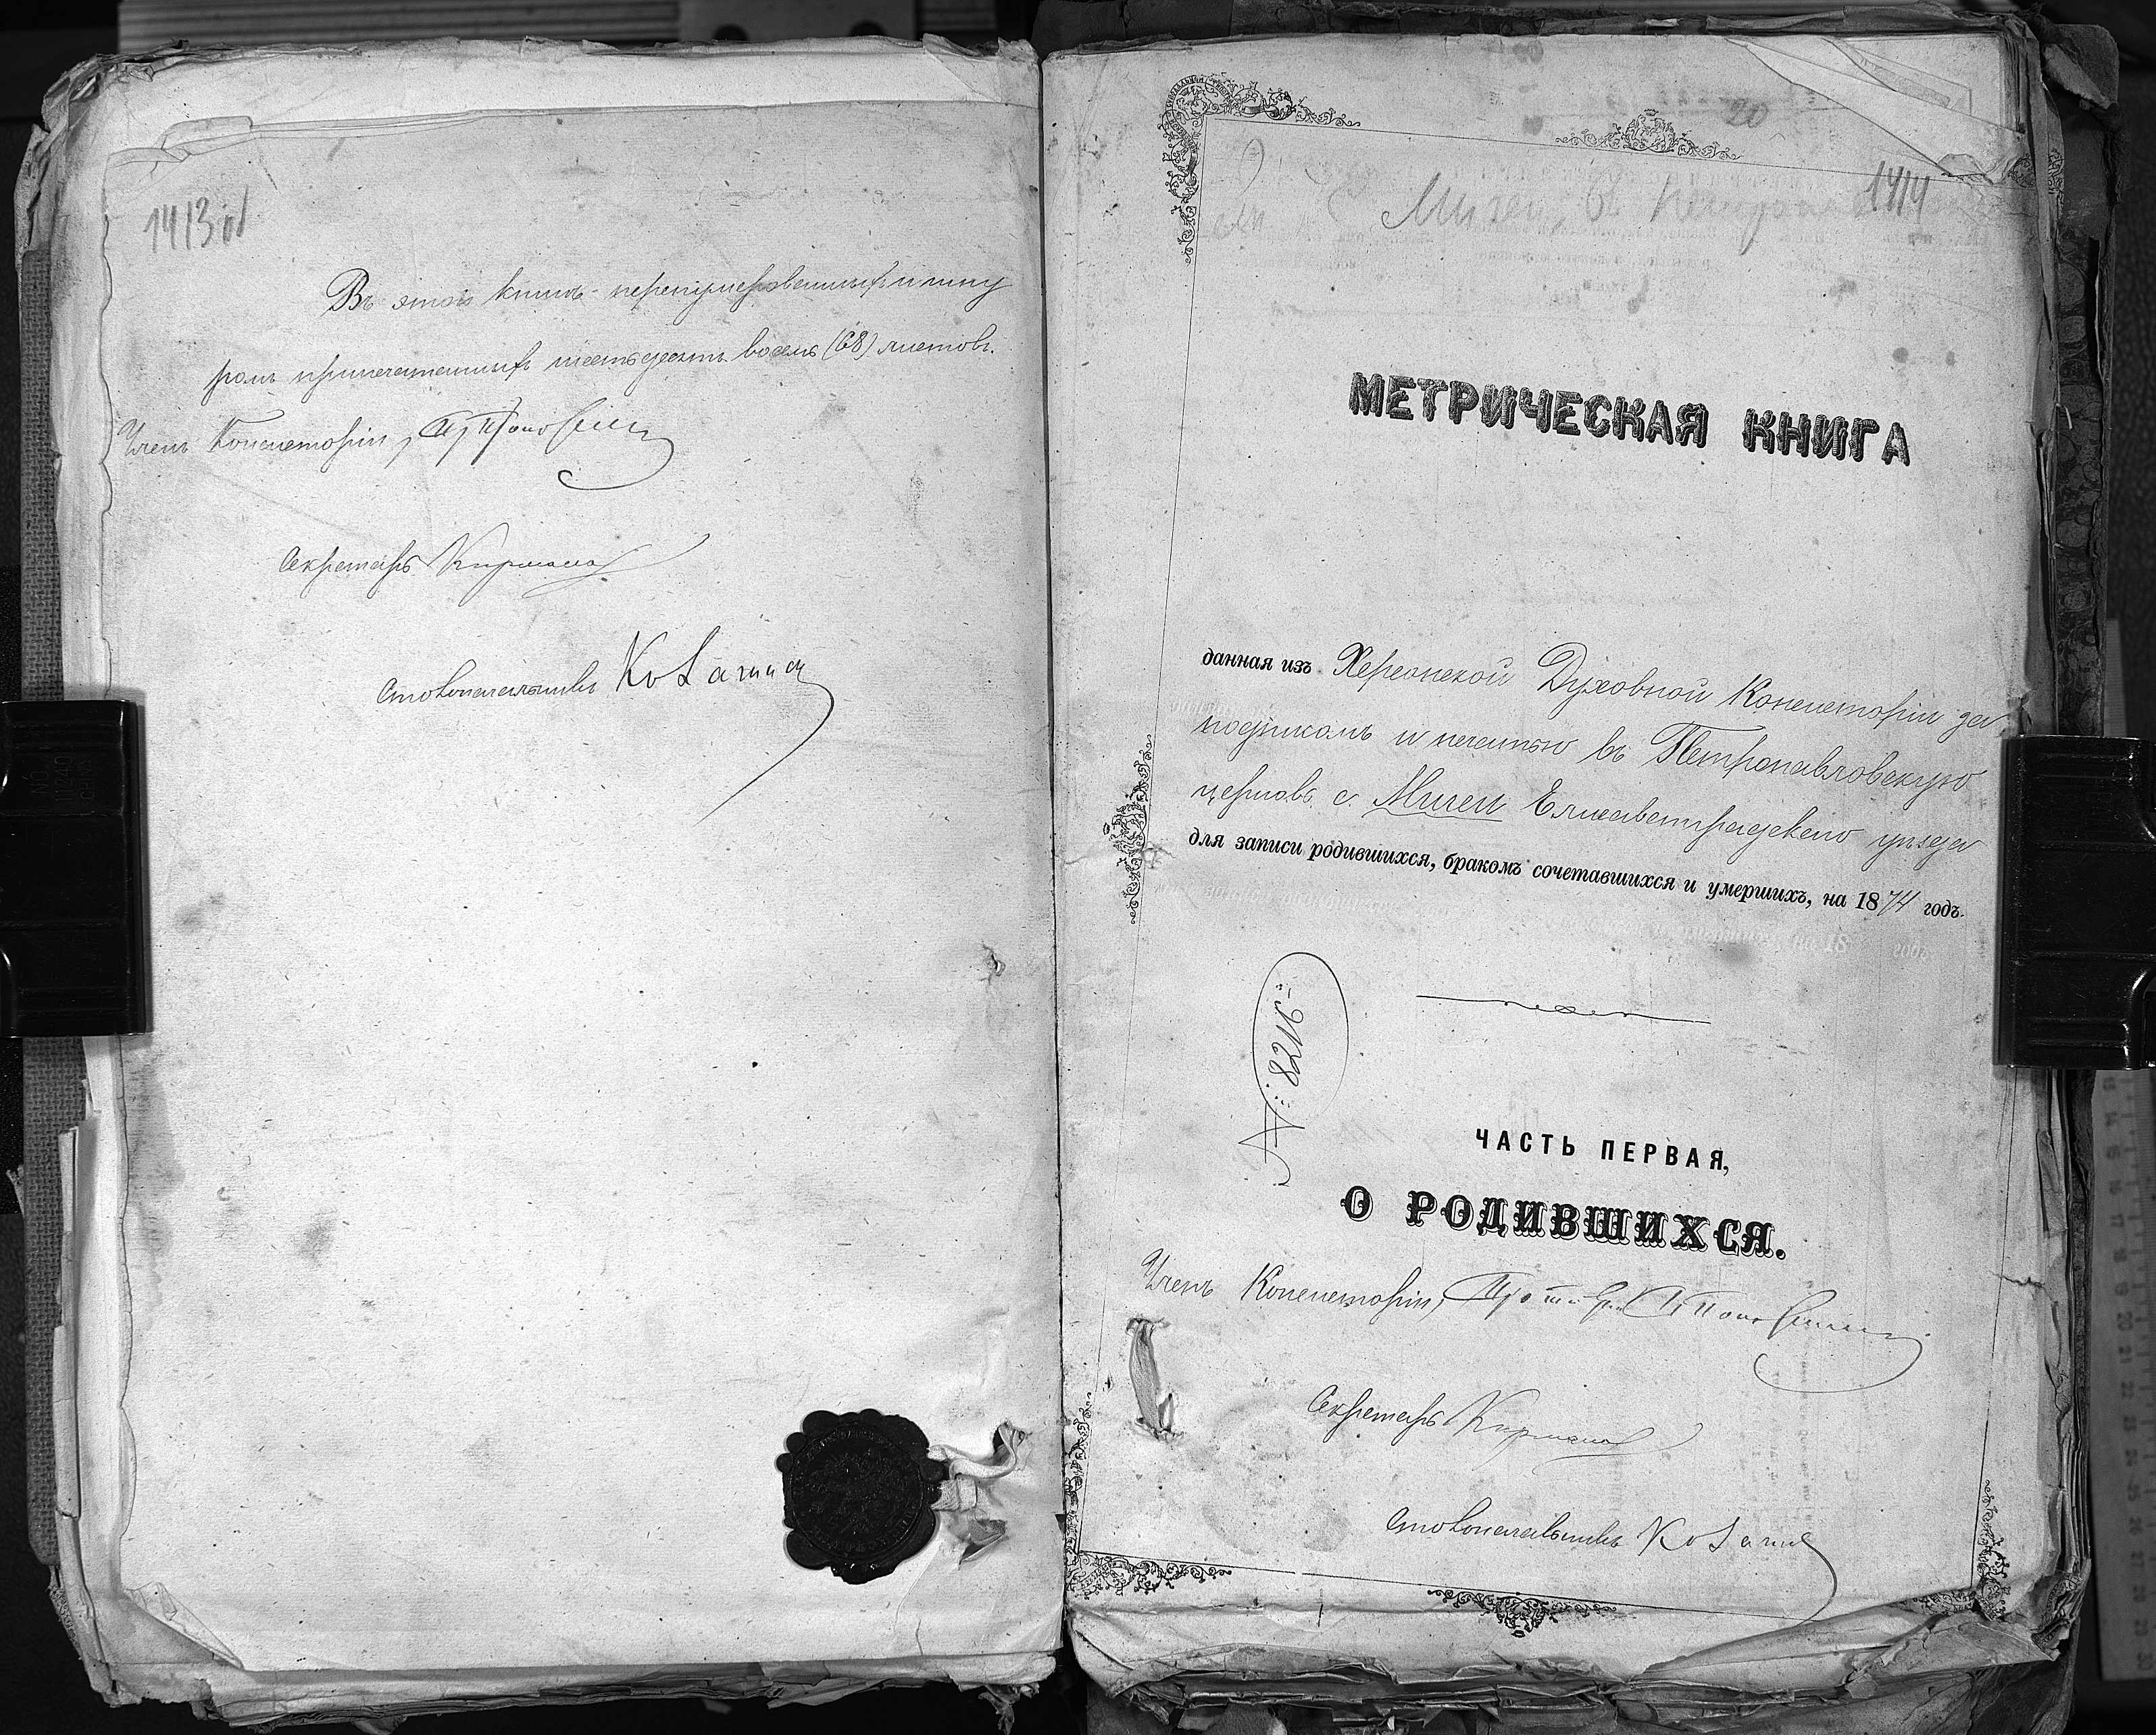 1413 об
Въ этой книгѣ перенумерованныхъ и шну
ромъ припечатанныхъ шестьдесятъ восемь (68) листовъ.
Членъ Консисторіи,
Секретарь
Столоначальникъ
20
1414
с. Мигеи
МЕТРИЧЕСКАЯ КНИГА
данная изъ Херсонской Духовной Консисторіи за
подписомъ и печатью въ Петропавловскую
церковь с. Мигеи Елисаветградскаго уѣзда
для записи родившихся, бракомъ сочетавшихся и умершихъ, на 1874 годъ.
№ 8216
ЧАСТЬ ПЕРВАЯ,
О РОДИВШИХСЯ.
Членъ Консисторіи,
Секретарь
Столоначальникъ